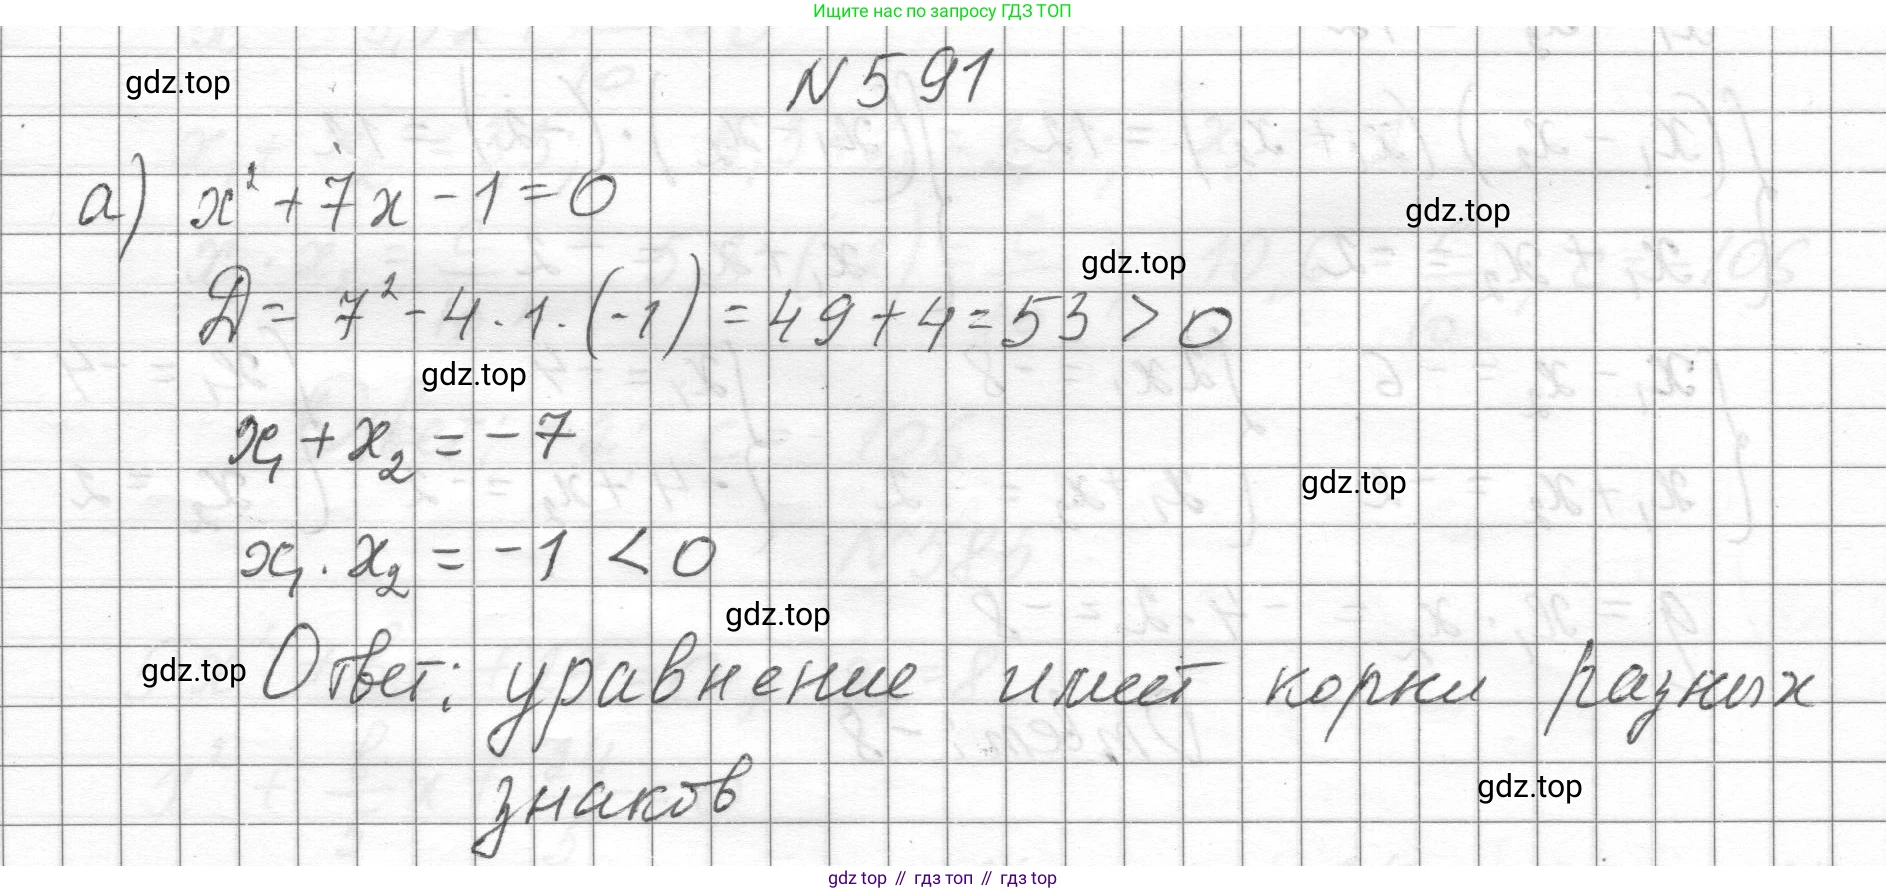 Ищите нас по запросу ГДЗ ТОП
gdz.top
N 591
а) x² + 7x - 1 = 0
gdz.top
gdz.top
Д = 7² - 4 · 1 · (-1) = 49 + 4 = 53 > 0
gdz.top
x₁ + x₂ = - 7
gdz.top
x₁ · x₂ = - 1 < 0
gdz.top
gdz.top
Ответ: уравнение имеет корни разных
знаков
gdz.top
gdz top // гдз топ // гдз top